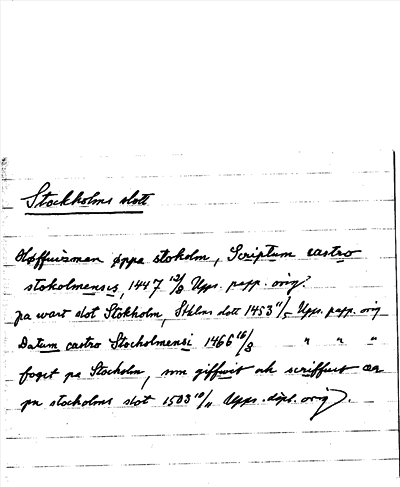 Stockholms slott
Høffuizman øppa stokolm, Scriptum castro
stokolmensis, 1447 12/8 Upps. papp. orig.
pa wart slot Stokholm, Sthlms slott 1453 11/5 Upps. papp. orig
Datum castro Stocholmensi 1466 16/8 " " "
foget pa Stocholm, som giffwit och scriffwit ær
pa stocholms slot 1503 10/11 Upps. dipl. orig).